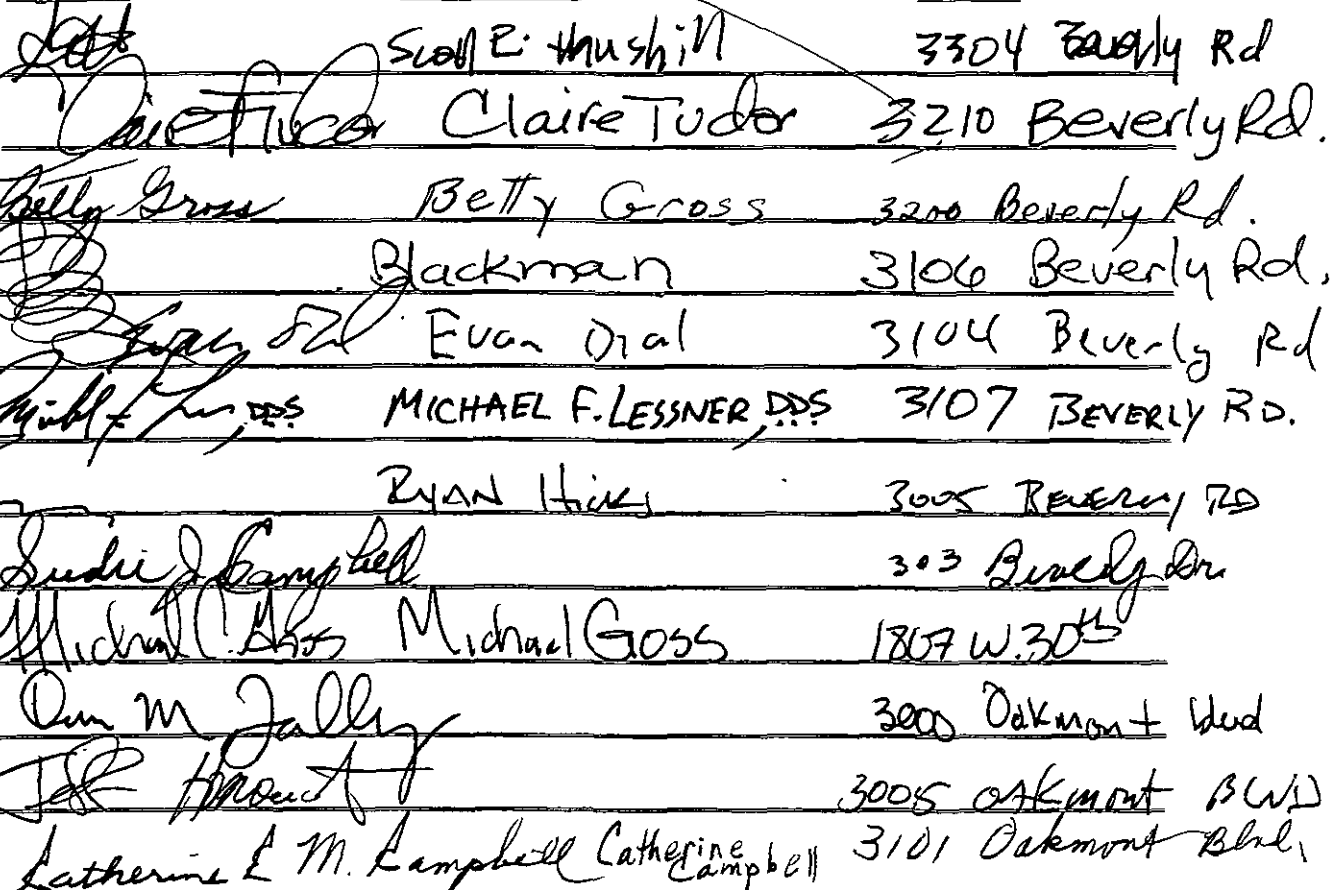 Scott E. 3304 Beverly Rd
Claire Tudor Claire Tudor 3210 Beverly Rd.
Betty Gross Betty Gross 3200 Beverly Rd.
Blackman 3106 Beverly Rd.
Evan Dial 3104 Beverly Rd
DDS MICHAEL F. LESSNER, DDS 3107 BEVERLY RD.
RYAN Hicks 3005 BEVERLY RD
J. Campbell 303 Beverly Dr.
Michael C. Goss Michael Goss 1807 W. 30th
M 3000 Oakmont blvd
Jeff 3005 Oakmont BLVD
Catherine E M. Campbell Catherine Campbell 3101 Oakmont Blvd.